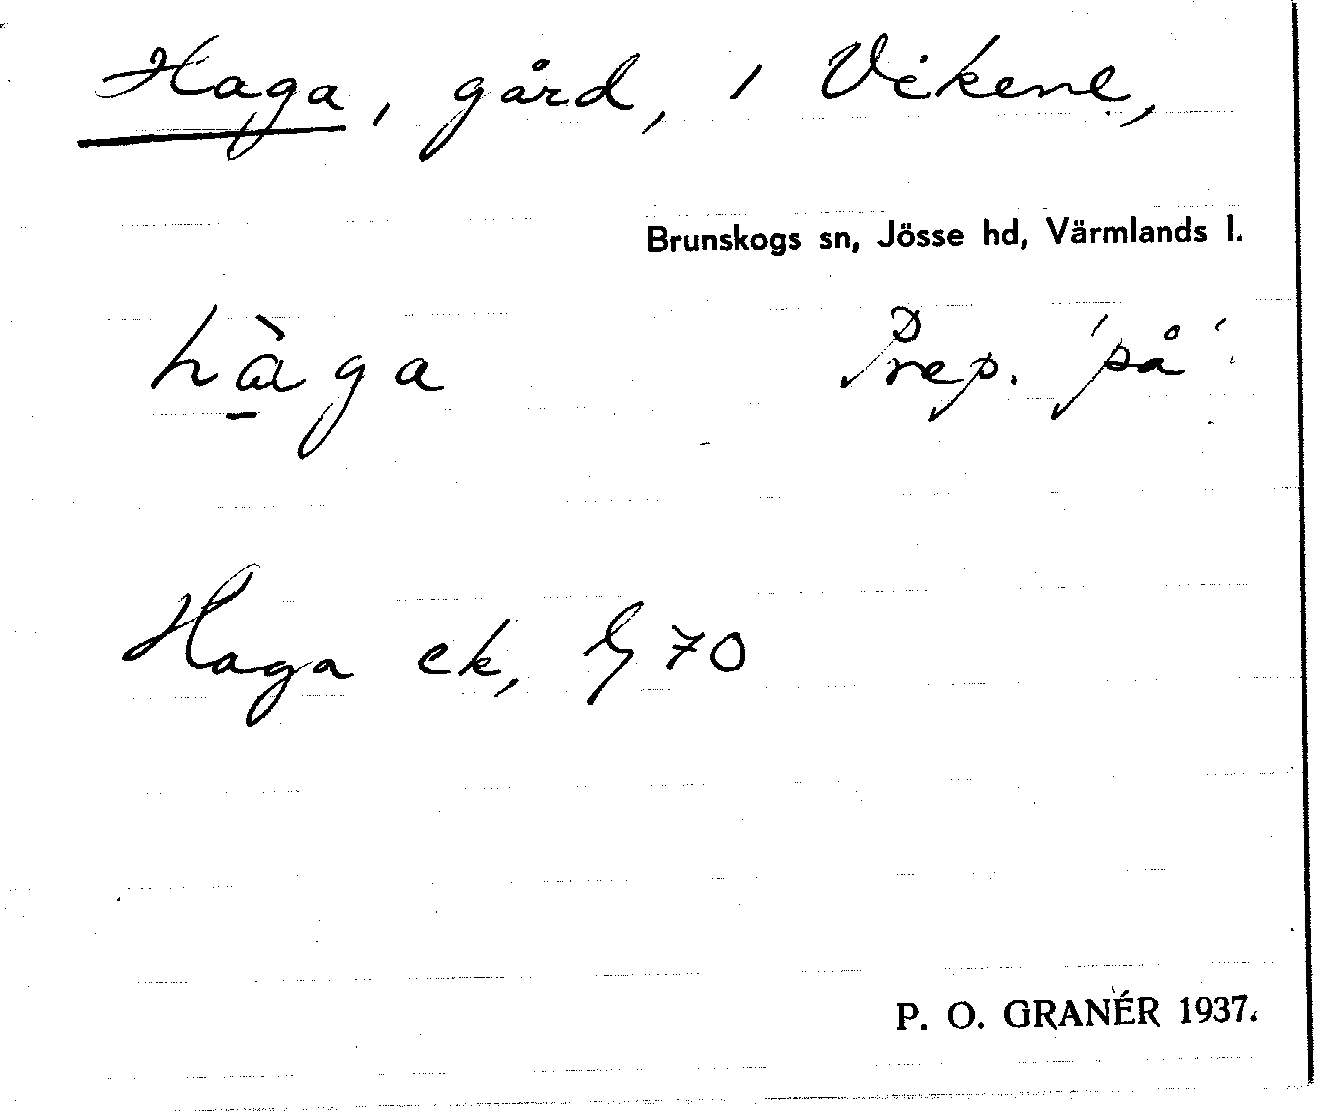 Haga, gård, i Vikene,
Brunskogs sn, Jösse hd, Värmlands l.
hàga Prep. 'på'
Haga ek, G 70
P. O. GRANÉR 1937.